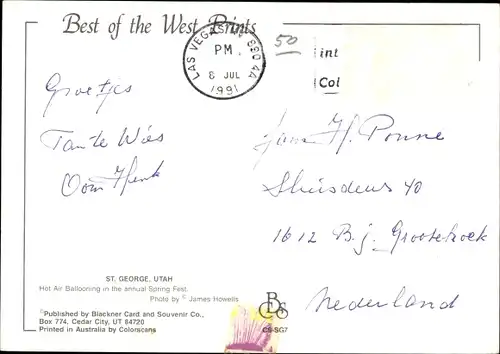 Best of the West Prints
LAS VEGAS, NV 89044
PM
8 JUL
1991
50
int
Col
Groetjes
Tante Wies
Oom Henk
Fam H. Ponne
40
1612 B.j. Grootebroek
Nederland
ST. GEORGE, UTAH
Hot Air Ballooning in the annual Spring Fest.
Photo by © James Howells
©Published by Blackner Card and Souvenir Co.,
Box 774, Cedar City, UT 84720
Printed in Australia by Colorscans
CS-SG7